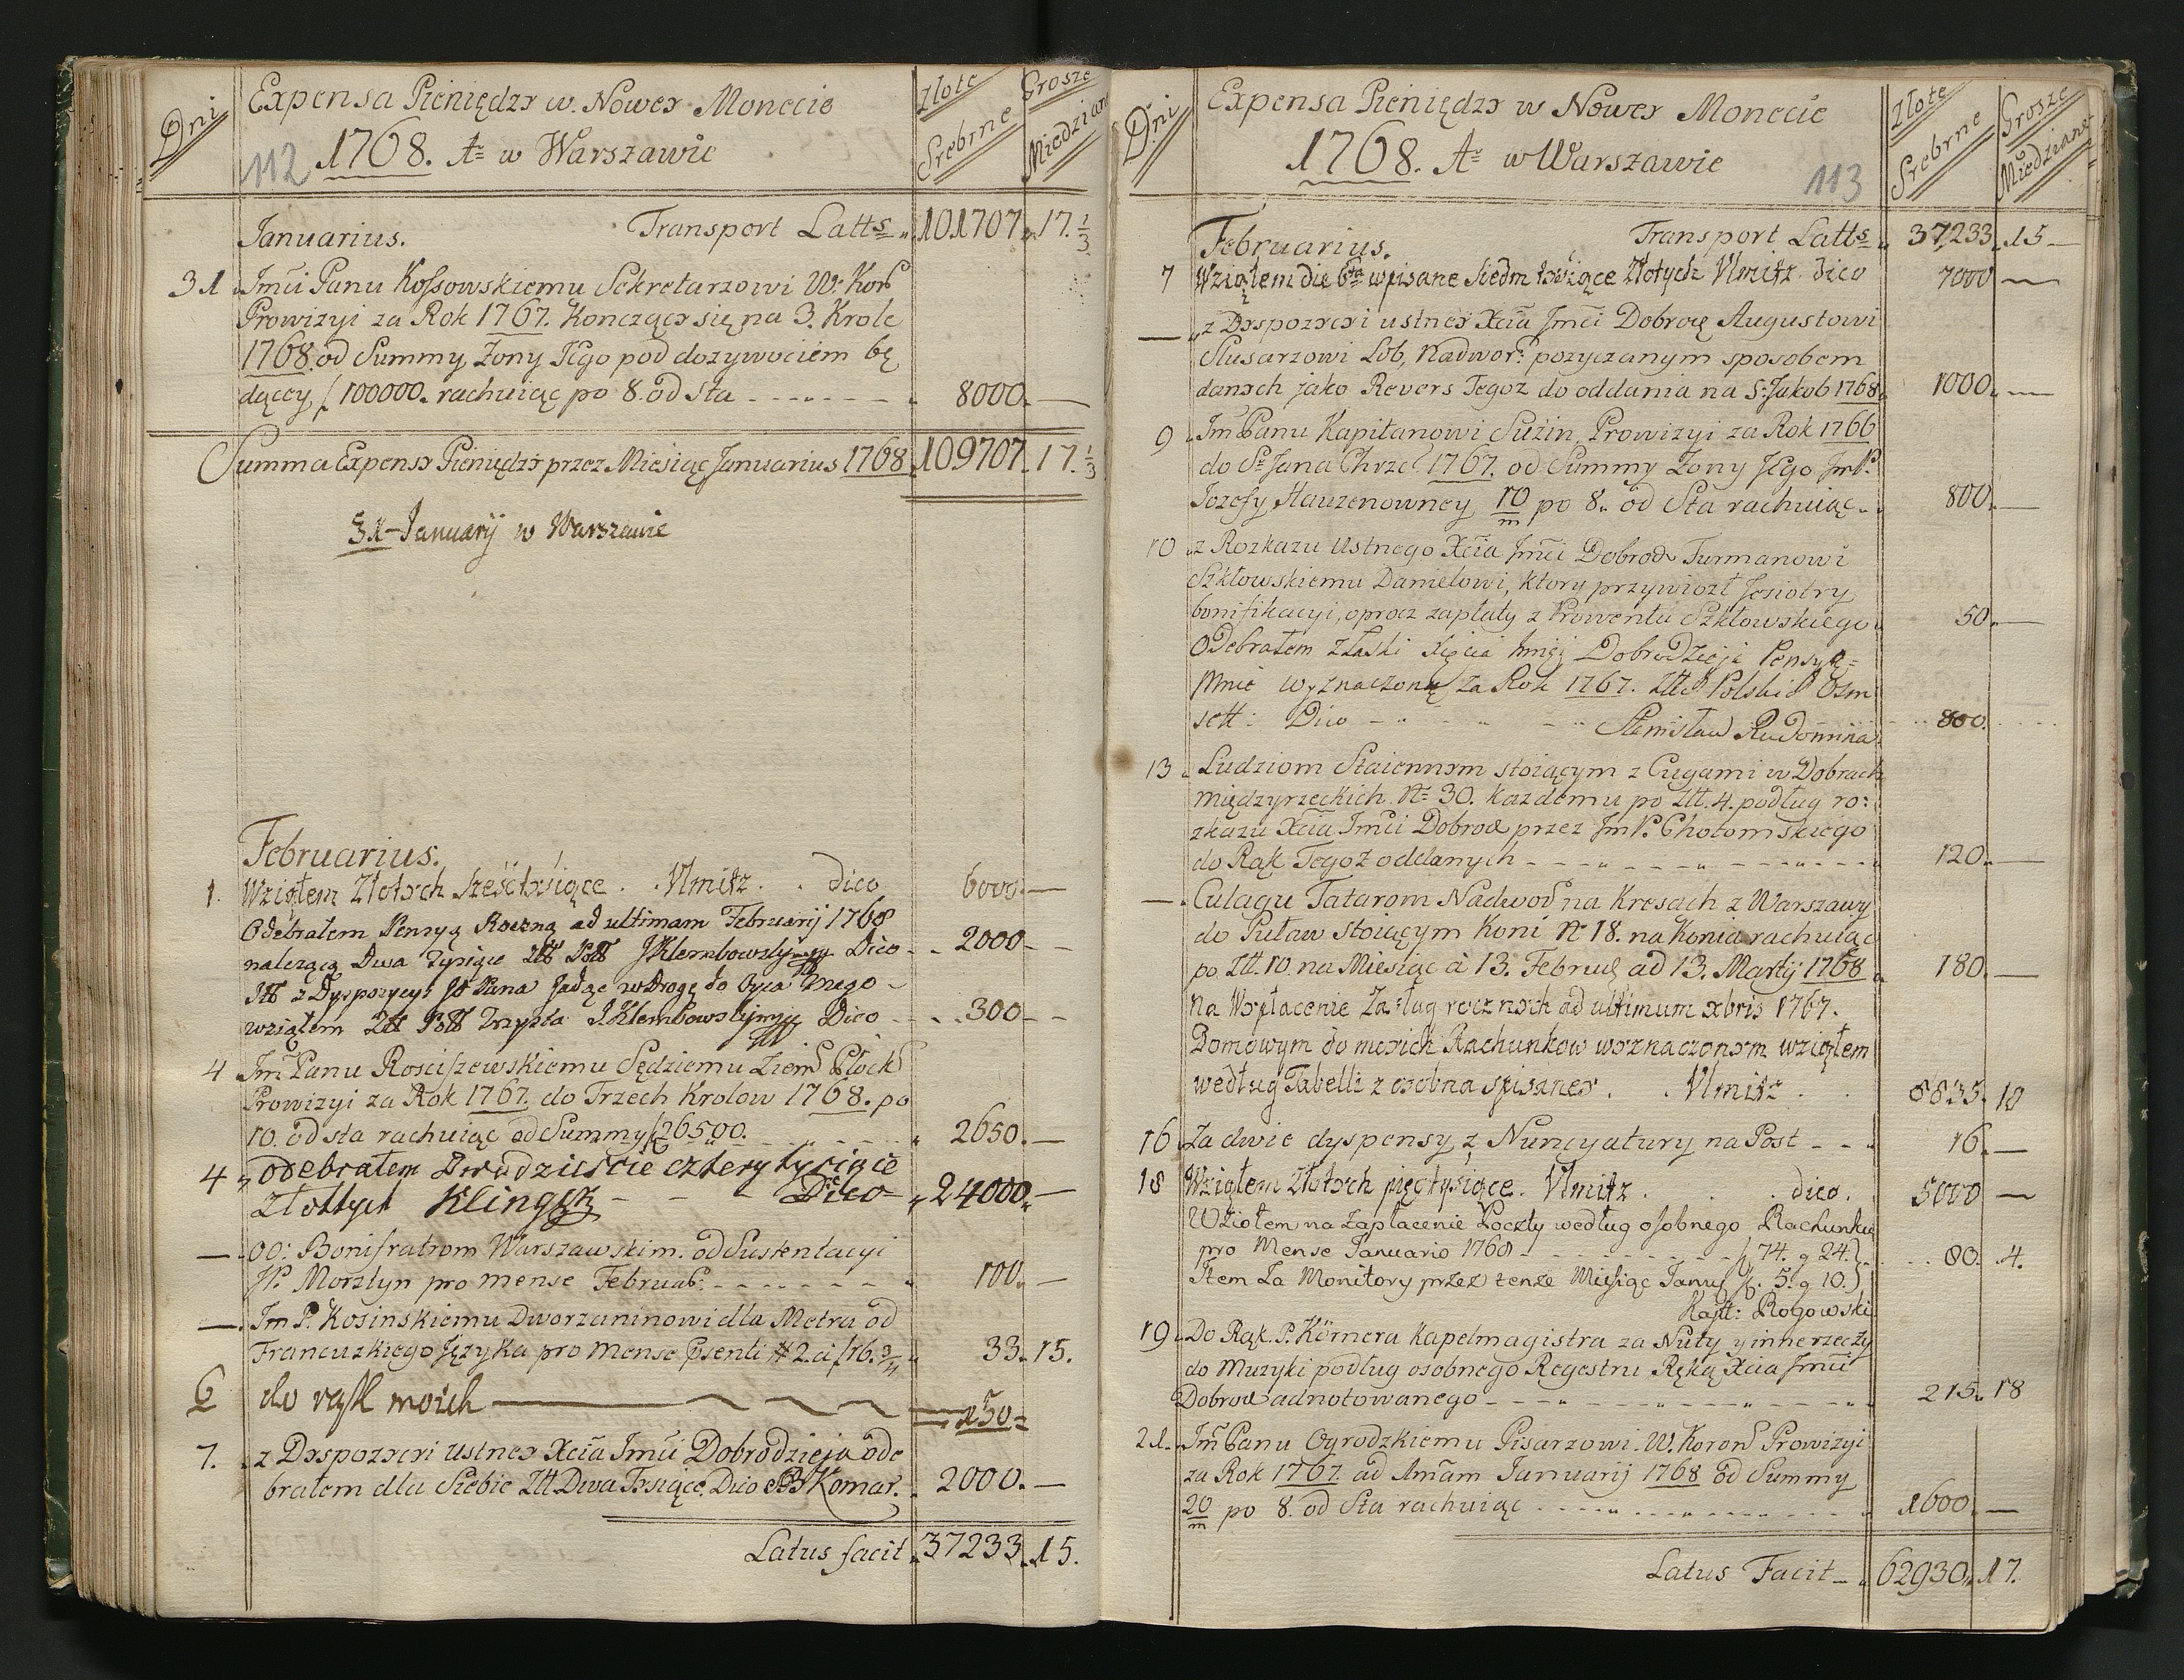 Dni
Expensa Pieniędzy w Nowey Monecie
Złote Srebrne
Grosze Miedziane
112 1768. Ao w Warszawie
Januarius. Transport Latus 101707. 17. 1/3
31 Jmci Panu Kossowskiemu Sekretarzowi W. Kor
Prowizyi za Rok 1767. Konczącą się na 3. Krole
1768. od Summy Zony Jego pod dozywociem bę
dącey f 100000. rachuiąc po 8. od sta 8000. —
Summa Expensy Pieniędzy przez Miesiąc Januarius 1768 109707. 17. 1/3
31 January w Warszawie
Februarius.
1. Wziąłem Złotych sześć tysięcy. Vmitz. dico 6000 —
Odebrałem Pensyą Roczną ad ultimam Februarij 1768
należącą Dwa Tysiące Złł Poll JKlembowsky Dico 2000 —
Itt z Dyspozycyi Jo Pana Jadąc w Drogę do Oyca mego
wziąłem Złł Poll Trzysta J.Klembowsky Dico 300 —
4 Jm Panu Rosciszewskiemu Sędziemu Ziem Płock
Prowizyi za Rok 1767. do Trzech Krolow 1768. po
10. od sta rachuiąc od Summy f 26500. 2650. —
4 odebrałem Dwadziescie cztery tysiące
Złottych Klingg Dico 24000. —
— OO: Bonifratrom Warszawskim. od Sustentacyi
JP. Morsztyn pro mense Februar: 100. —
— Jm P. Kosinskiemu Dworzaninowi dla Metra od
Francuzkiego Języka pro mense psenti # 2. a f 16. 3/4 33. 15.
6 do rąk moich 150
7. z Dyspozycyi ustney Xcia Jmci Dobrodzieja ode
brałem dla Siebie Złł. Dwa Tysiące. Dico Komar. 2000. —
Latus facit 37233. 15.
Dni
Expensa Pieniędzy w Nowey Monecie
Złote Srebrne
Grosze Miedziane
1768. Ao w Warszawie 113
Februarius. Transport Latus 37233. 15 —
7 Wziąłem die 6ta wpisane siedm tysięce Złotych Vmitz. dico 7000 —
— z Dyspozycyi ustney Xcia Jmci Dobrod Augustowi
Slusarzowi Lob, Nadwor: pozyczanym sposobem
danych jako Revers Tegoz do oddania na S: Jakob 1768 1000. —
9 Jm Panu Kapitanowi Suzin, Prowizyi za Rok 1766
do S Jana Chrzc 1767. od Summy Zony Jego Jm P.
Jozefy Hauzenowney 10/m po 8. od Sta rachuiąc 800. —
10 z Rozkazu Ustnego Xcia Jmci Dobrod Furmanowi
Szkłowskiemu Danielowi, ktory przywiozł Jesiotry
bonifikacyi, oprocz zapłaty z Prowentu Szkłowskiego 50. —
Odebrałem z łaski Xięcia Dobrodzieja Pensyą
Mnie wyznaczoną za Rok 1767. Złł Polskich Osm
sett: Dico Stanisław Rudomina 800.
13 Ludziom Staiennym stoiącym z Cugami w Dobrach
Międzyrzeckich. No 30. kazdemu po Złł. 4. podług ro:
zkazu Xcia Jmci Dobrod przez Jm P. Chotomskiego
do Rąk Tegoz oddanych 120. —
— Culagu Tatarom Nadwor na Kresach z Warszawy
do Puław stoiącym Koni No 18. na Konia rachuiąc
po Złł. 10. na Miesiąc a 13. Februar ad 13. Martij 1768 180. —
Na Wypłacenie Zasług rocznych ad ultimum xbris 1767.
Domowym do moich Rachunkow wyznaczonym wziąłem
według Tabelli z osobna spisaney. Vmitz 8835. 10
16 Za dwie dyspensy z Nuncyatury na Post 16. —
18 Wziąłem Złotych pięc tysięce. Vmitz. dico. 5000 —
Wziołem na zapłacenie Poczty według osobnego Rachunku
pro Mense Januario 1768 f 74. g 24.
Item za Monitory przez tenze Miesiąc Januar f. 5. g 10. 80. 4.
Kajtt: Rogowski
19 Do Rąk. P. Körnera Kapelmagistra za Nuty y inne rzeczy
do Muzyki podług osobnego Regestru Ręką Xcia Jmci
Dobrod adnotowanego 215. 18
21. Jm Panu Ogrodzkiemu Pisarzowi W. Koron Prowizyi
za Rok 1767. ad 1mam Januarij 1768 od Summy
20/m po 8. od Sta rachuiąc 1600. —
Latus Facit 62930. 17.